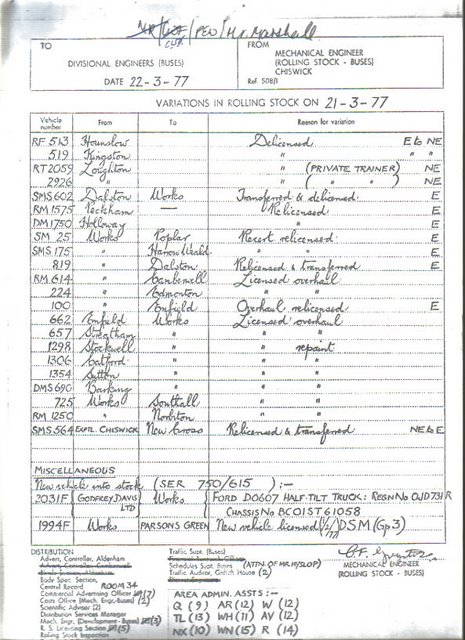 PEO / Mr. Marshall
TO
DIVISIONAL ENGINEERS (BUSES)
DATE 22-3-77
FROM
MECHANICAL ENGINEER
(ROLLING STOCK - BUSES)
CHISWICK
Ref. 508/1
VARIATIONS IN ROLLING STOCK ON 21-3-77
Vehicle number From To Reason for variation
RF 513 Hounslow Delicensed E to NE
519 Kingston " " NE
RT 2059 Loughton " (PRIVATE TRAINER) NE
2926 " " ( " " ) NE
SMS 602 Dalston Works Transferred & delicensed E
RM 1575 Peckham — Relicensed E
DM 1750 Holloway " E
SM 25 Works Poplar Recert relicensed E
SMS 175 " Harrow Weald " " E
819 " Dalston Relicensed & transferred E
RM 614 " Camberwell Licensed overhaul
224 " Edmonton " "
100 " Enfield Overhaul relicensed E
662 Enfield Works Licensed overhaul
657 Streatham " " "
1298 Stockwell " " repaint
1306 Catford " " "
1354 Sutton " " "
DMS 690 Barking " " "
725 Works Southall " "
RM 1250 " Norbiton " "
SMS 564 EXPTL. CHISWICK New Cross Relicensed & transferred NE to E
MISCELLANEOUS
New vehicle into stock (SER 750/615) :-
2031F (GODFREY DAVIS LTD) Works (FORD D0607 HALF-TILT TRUCK: RESN NO OJD 731R
CHASSIS NO BC01ST 61058
1994F Works PARSONS GREEN New vehicle licensed DSM (Gp 3)
DISTRIBUTION
Advert. Controller, Aldenham
Body Spec. Section,
Central Record ROOM 34
Commercial Advertising Officer (7)
Costs Office (Mech. Engr.-Buses) (2)
Scientific Adviser (2)
Distribution Services Manager
Mech. Engr. (Development - Buses) (3)
R. S. Licensing Section (5)
Rolling Stock Inspection
Traffic Supt. (Buses)
Schedules Supt. Buses (ATTN. OF MR HYSLOP)
Traffic Auditor, Griffith House (2)
MECHANICAL ENGINEER
(ROLLING STOCK - BUSES)
AREA ADMIN. ASSTS :-
Q (9) AR (12) W (12)
TL (13) WH (11) AV (12)
NX (10) WN (15) R (14)